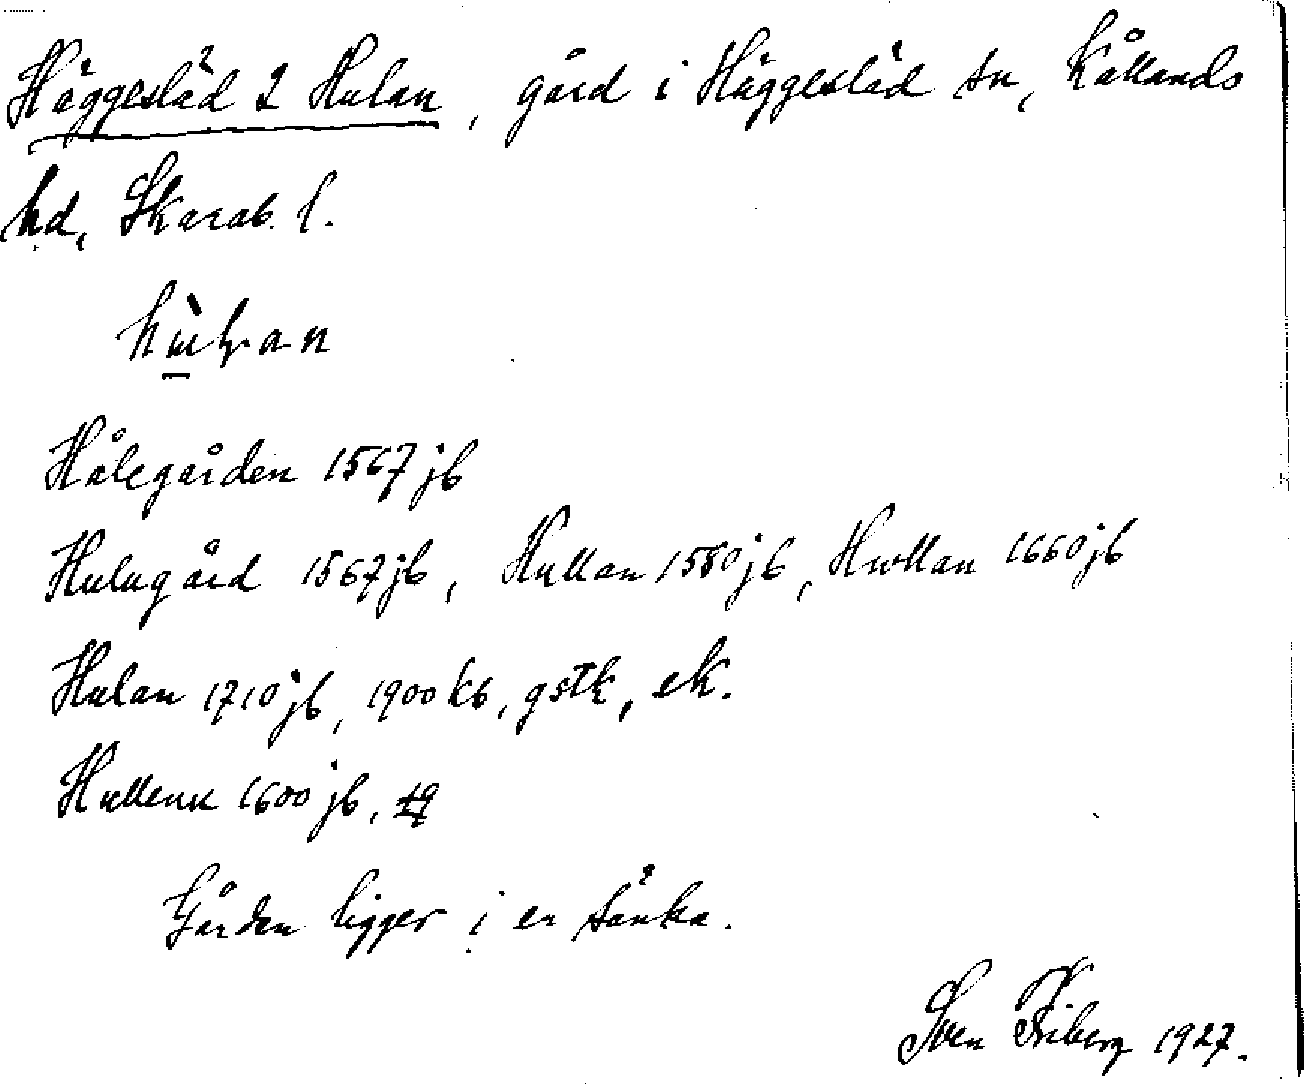 Häggesläd 2 Hulan, gård i Häggesläd sn, Kållands
hd, Skarab. l.
Hålegården 1567 jb
Hulugård 1567 jb, Hullan 1550 jb, Hwllan 1660 jb
Hulan 1710 jb, 1900 kb, gstk, ek.
Hullenn 1600 jb,
Gården ligger i en sänka.
Sven Friberg 1927.